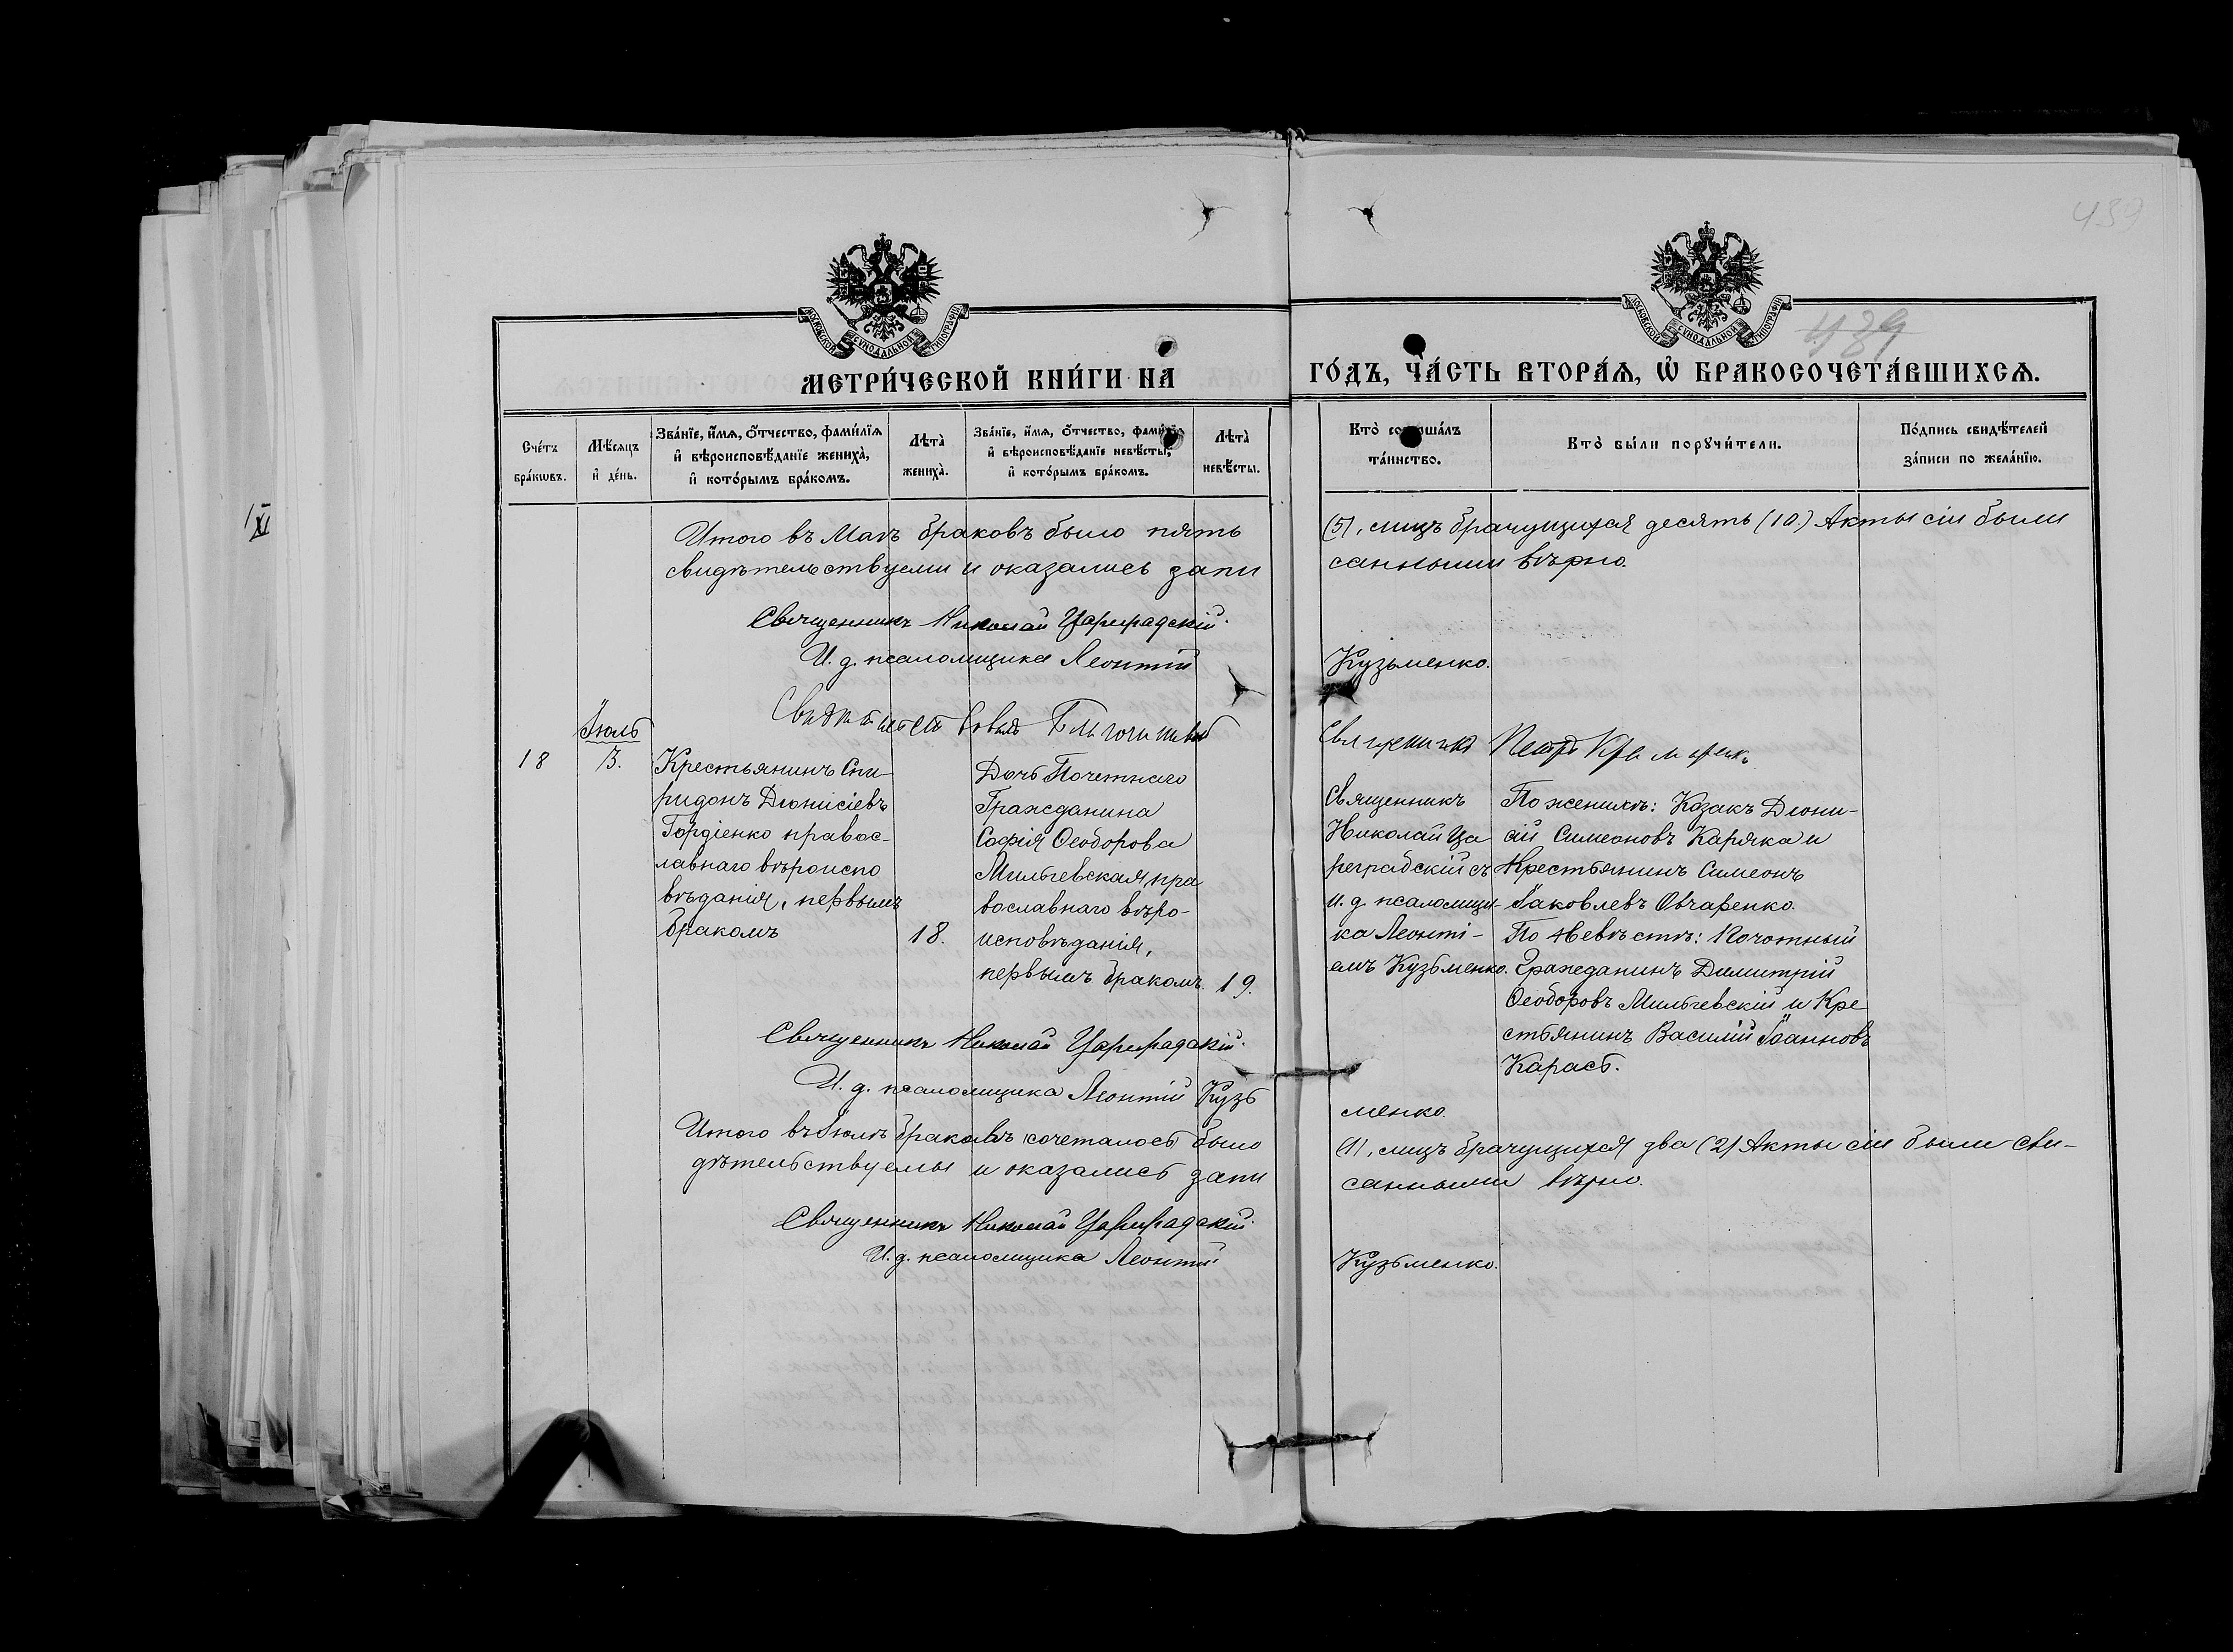 439
439
МОСКОВСКОЙ СѴНОДАЛЬНОЙ ТИПОГРАФІИ
МОСКОВСКОЙ СѴНОДАЛЬНОЙ ТИПОГРАФІИ
МЕТРИ́ЧЕСКОЙ КНИ́ГИ НА
ГО́ДЪ, ЧА́СТЬ ВТОРА́Ѧ, Ѽ БРАКОСОЧЕТА́ВШИХСѦ.
Сче́тъ
бра́кѡвъ.
Мѣ́сѧцъ
и҆ де́нь.
Зва́нїе, и҆́мѧ, о҆́тчество, фами́лїѧ
и҆ вѣроисповѣ́данїе жениха̀,
и҆ кото́рымъ бра́комъ.
Лѣта̀
жениха̀.
Зва́нїе, и҆́мѧ, о҆́тчество, фами́лїѧ
и҆ вѣроисповѣ́данїе невѣ́сты,
и҆ кото́рымъ бра́комъ.
Лѣта̀
невѣ́сты.
Кто̀ соверша́лъ
та́инство.
Кто̀ бы́ли порꙋчи́тели.
По́дпись свидѣ́телей
за́писи по жела́нїю.
Итого въ Маѣ браковъ было пять
(5), лицъ брачущихся десять (10.) Акты сіи были
свидѣтельствуеми и оказались запи
санными вѣрно.
Священникъ Николай Цареградскій.
И. д. псаломщика Леонтій
Кузьменко.
Благочинный
Священникъ Петръ
Іюль
18
3.
Крестьянинъ Спи-
ридонъ Діонисіевъ
Гордіенко правос-
лавнаго вѣроиспо
вѣданія, первымъ
бракомъ
18.
Дочь Почетнаго
Гражданина
Софія Ѳеодорова
Мильчевская, пра
вославнаго вѣро-
исповѣданія,
первымъ бракомъ.
19.
Священникъ
Николай Ца
реградскій съ
и. д. псаломщи-
ка Леонті-
емъ Кузьменко.
По женихѣ: Козакъ Діони-
сій Симеоновъ Каряка и
Крестьянинъ Симеонъ
Іаковлевъ Овчаренко.
По Невѣстѣ: Почотный
Гражданинъ Димитрій
Ѳеодоровъ Мильчевскій и Кре
стьянинъ Василій Іоанновъ
Карась.
Священникъ Николай Цареградскій.
И. д. псаломщика Леонтій Кузь
менко.
Итого въ Іюлѣ браковъ сочеталось было
(1), лицъ брачущихся два (2) Акты сіи были сви-
дѣтельствуемы и оказались запи
санными вѣрно.
Священникъ Николай Цареградскій.
И. д. псаломщика Леонтій
Кузьменко.